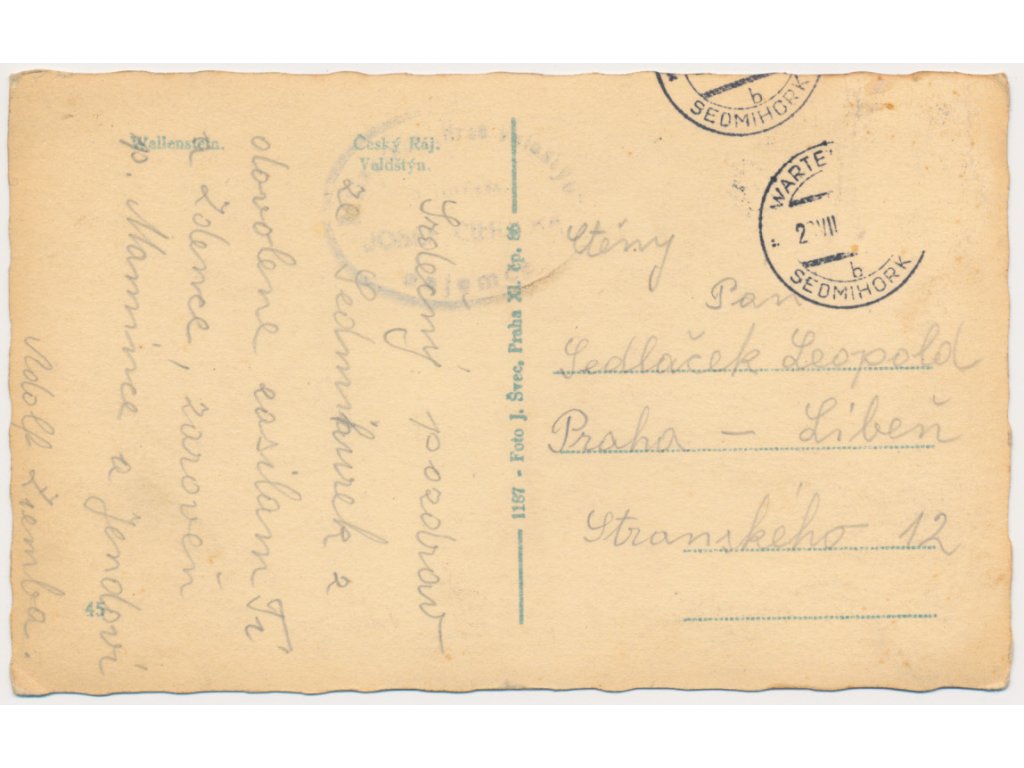 Wallenstein.
Český Ráj.
Valdštýn.
Srdečný pozdrav
ze Sedmihurek z
dovolené zasilam Ti
a Zdence, zároveň
p. Mamince a Jendovi
Adolf Ziemba.
45
1187 - Foto J. Švec, Praha XI. čp. 86
SEDMIHORK
b
WARTE
2 VII
b
SEDMIHORK
Ctěný
Pan
Sedláček Leopold
Praha - Libeň
Stranského 12